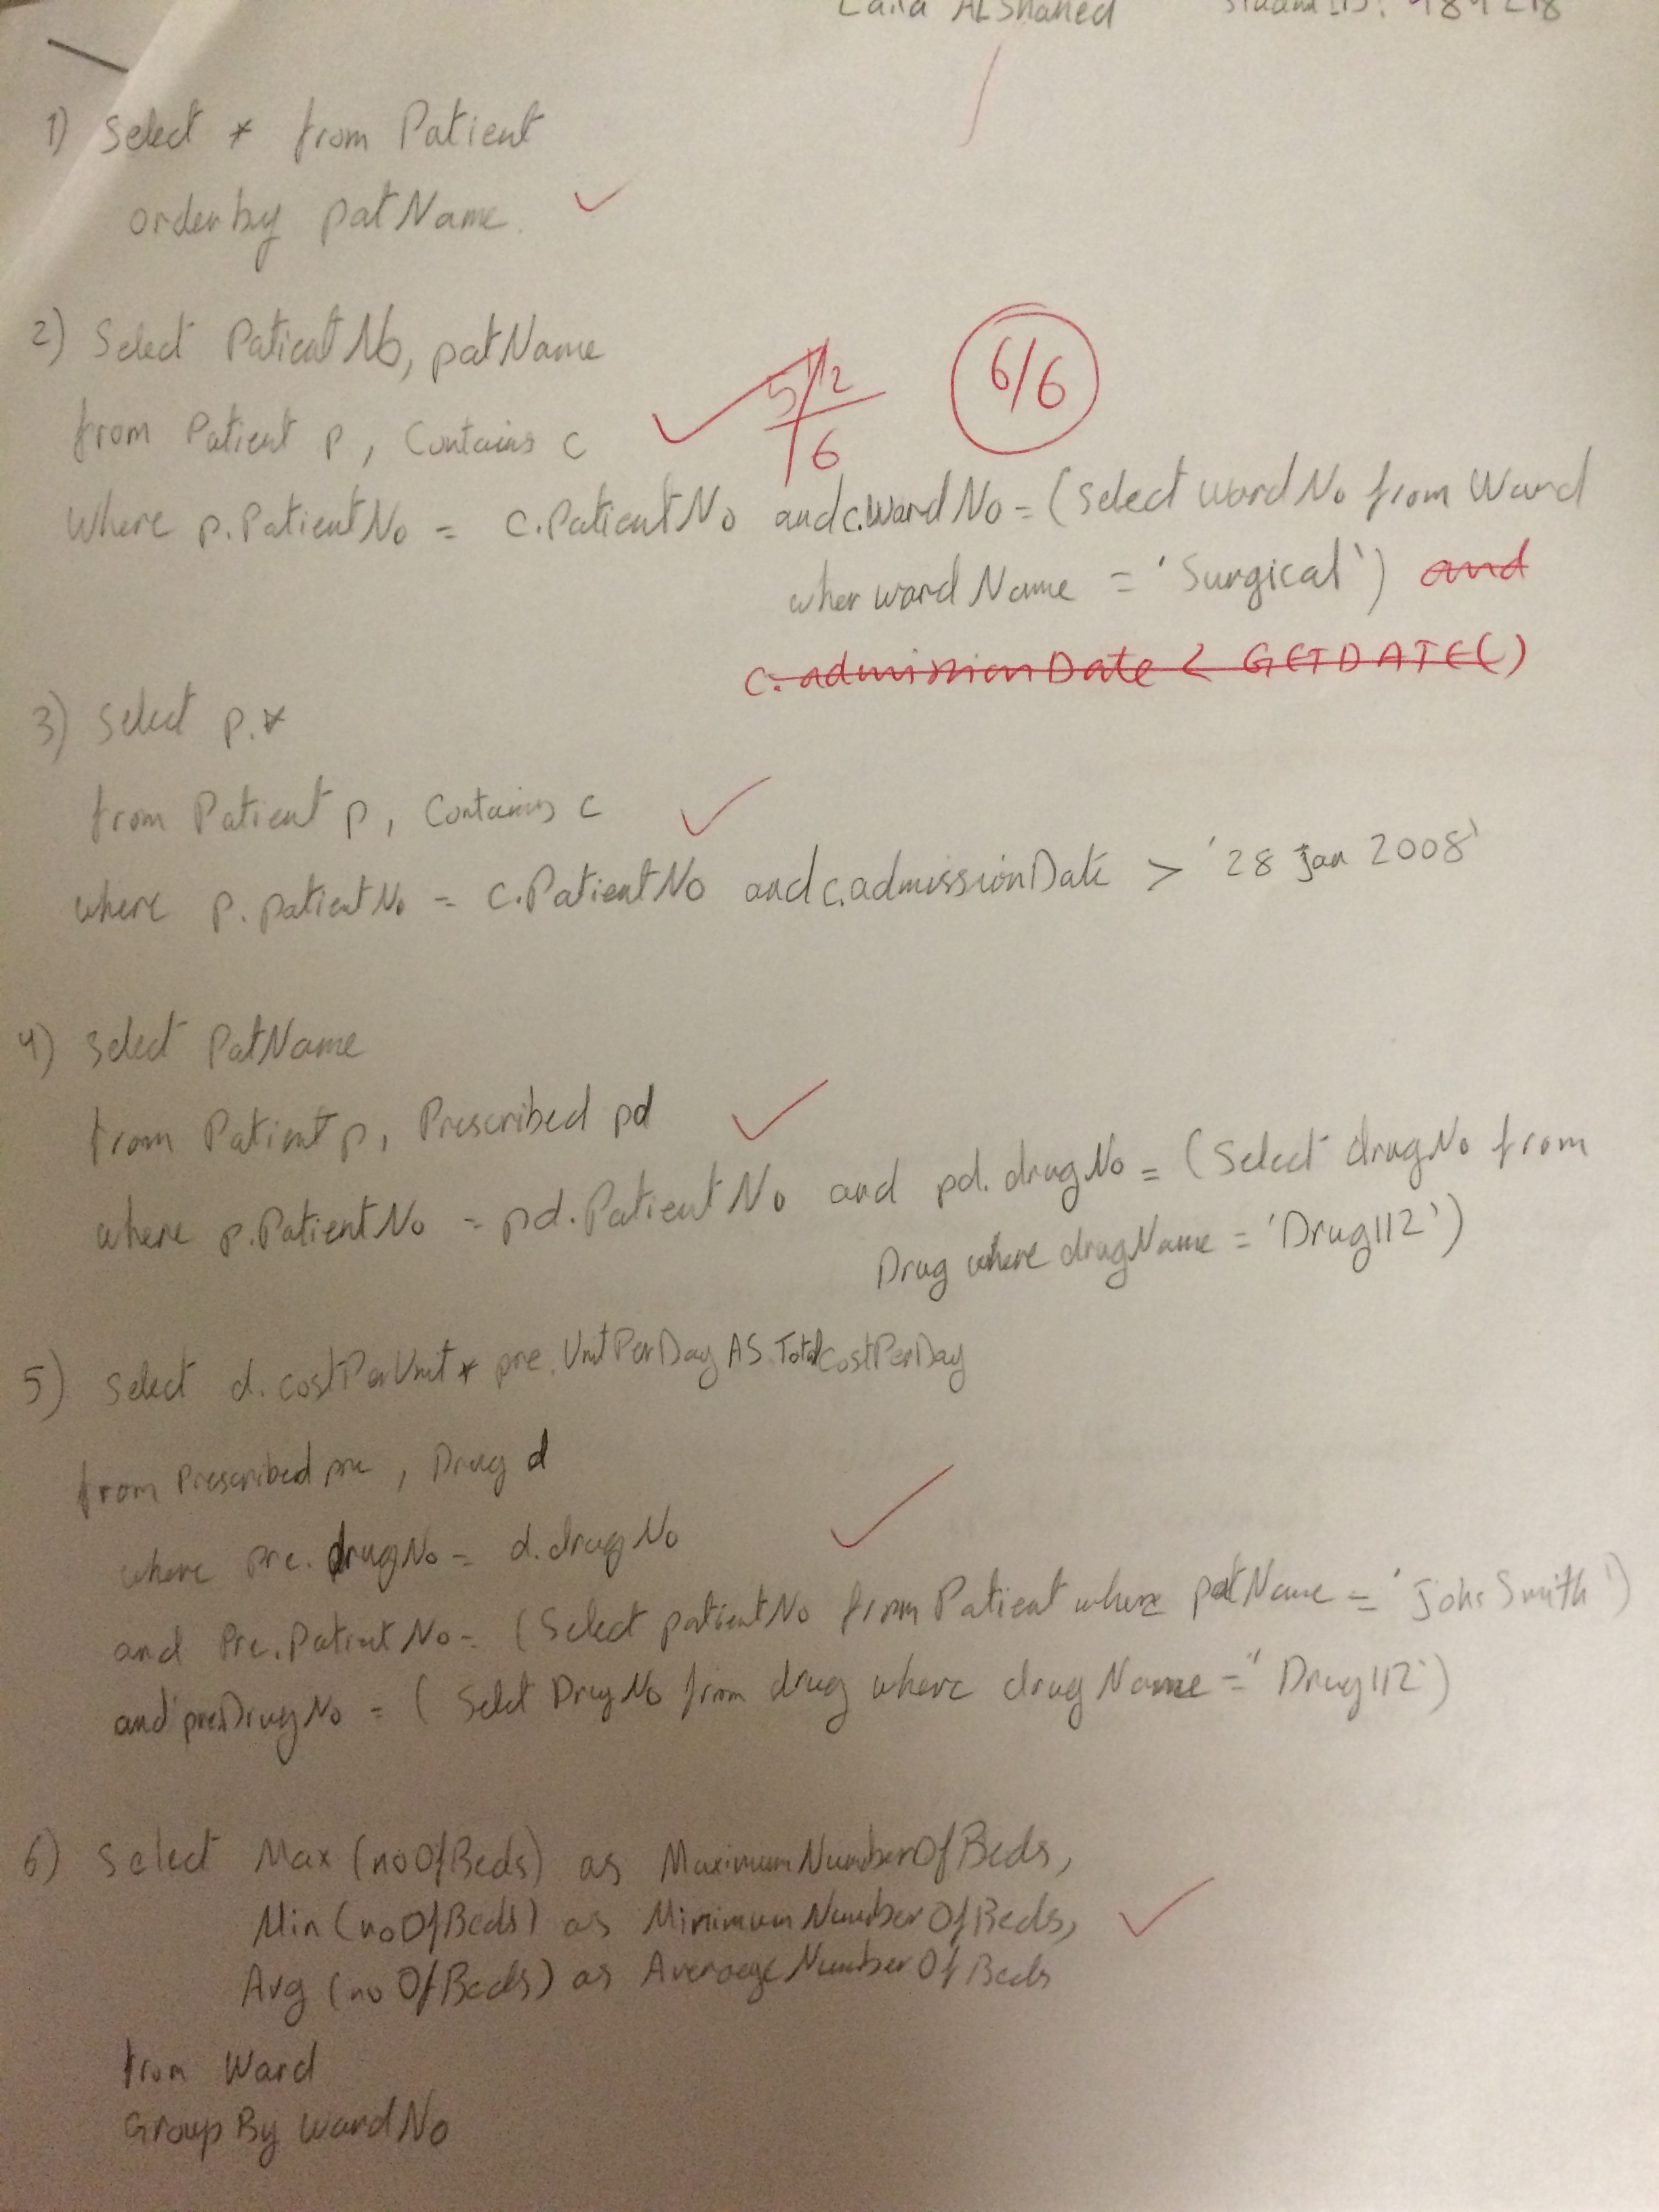 Laila ALShahed Student ID:
1) Select * from Patient
order by patName.
2) Select PatientNo, patName
from Patient p, Contains c
5 1/2
6
6/6
Where p.PatientNo = c.PatientNo and c.WardNo = (Select wardNo from Ward
wher wardName = 'Surgical') and
c.admissionDate < GETDATE()
3) Select p.*
from Patient p, Contains c
where p.patientNo = c.PatientNo and c.admissionDate > '28 Jan 2008'
4) Select PatName
from Patient p, Prescribed pd
where p.PatientNo = pd.PatientNo and pd.drugNo = (Select drugNo from
Drug where drugName = 'Drug112')
5) Select d.costPerUnit * pre.UnitPerDay AS TotalCostPerDay
from Prescribed pre, Drug d
where pre.drugNo = d.drugNo
and Pre.PatientNo = (Select patientNo from Patient where patName = 'John Smith')
and pre.DrugNo = (Selct DrugNo from drug where drugName = 'Drug112')
6) Select Max (noOfBeds) as MaximumNumberOfBeds,
Min (noOfBeds) as MinimumNumberOfBeds,
Avg (noOfBeds) as AveraegeNumberOfBeds
from Ward
Group By wardNo